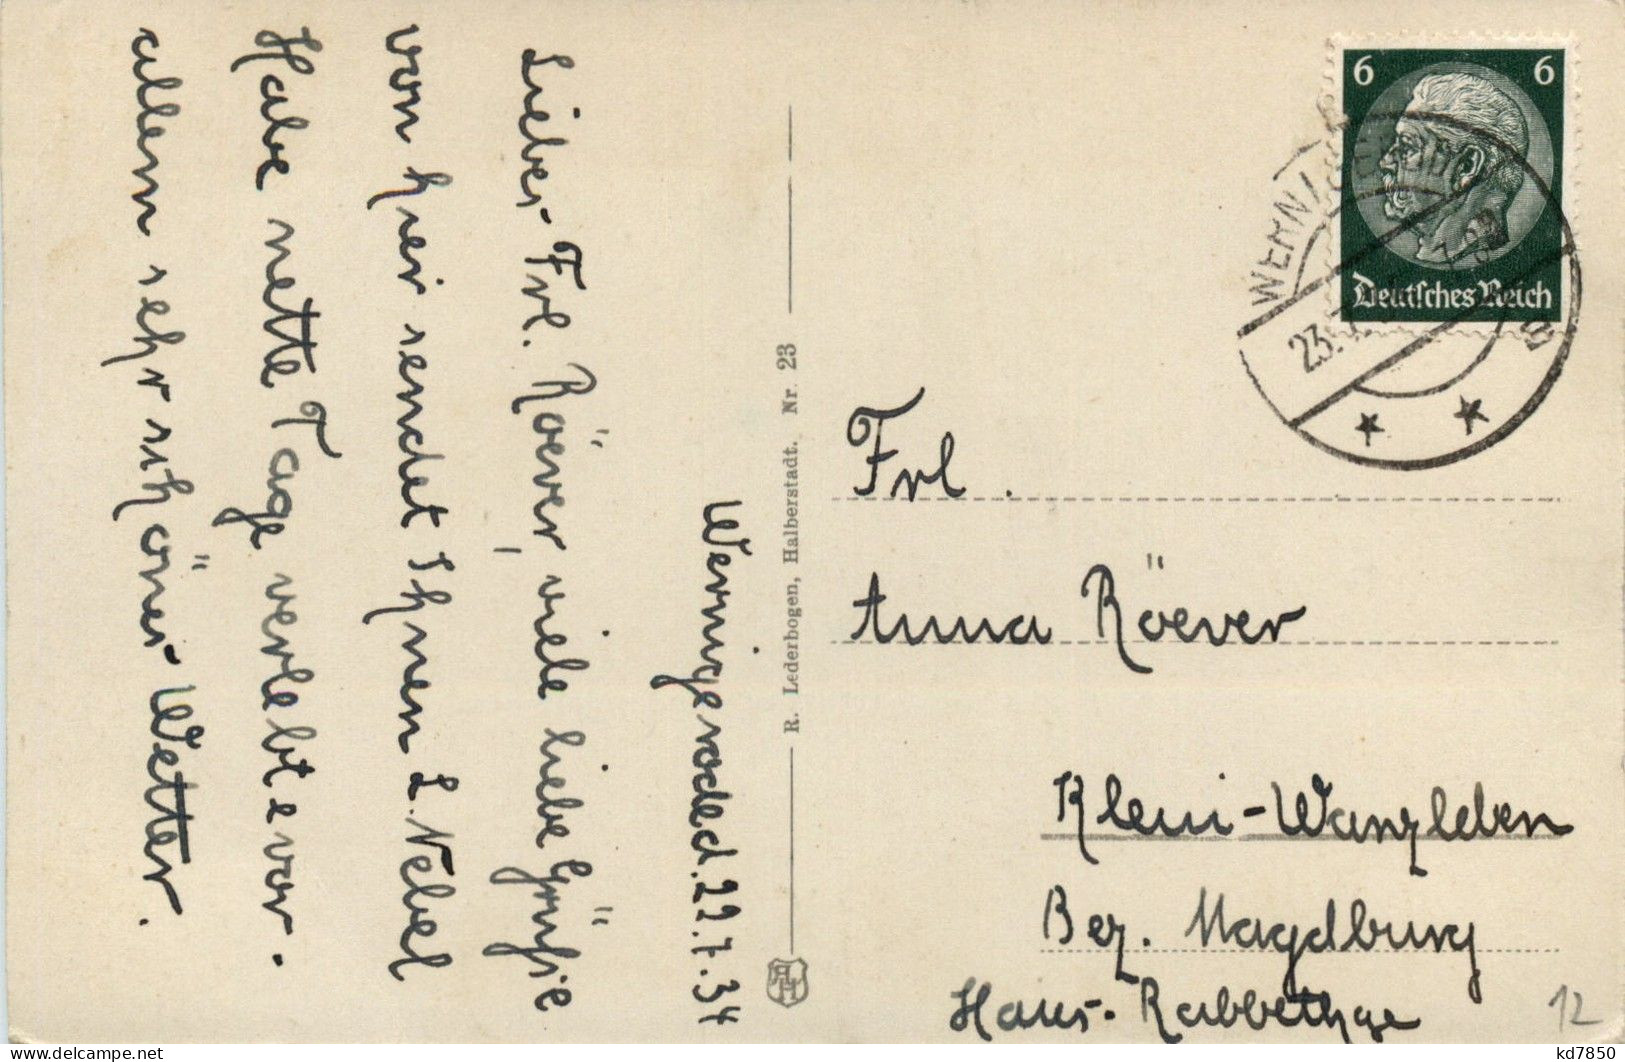 Wernigerode d. 22.7.34
Liebes Frl. Röever, viele liebe Grüße
von hier sendet Ihnen L. Nebel
Habe nette Tage verlebt
allem sehr schönes Wetter.
R. Lederbogen, Halberstadt. Nr. 23
6 6
Deutsches Reich
23.7.
Frl.
Anna Röever
Klein-Wanzleben
Bez. Magdburg
Haus-Rabbethge
12
delcampe.net
kd7850